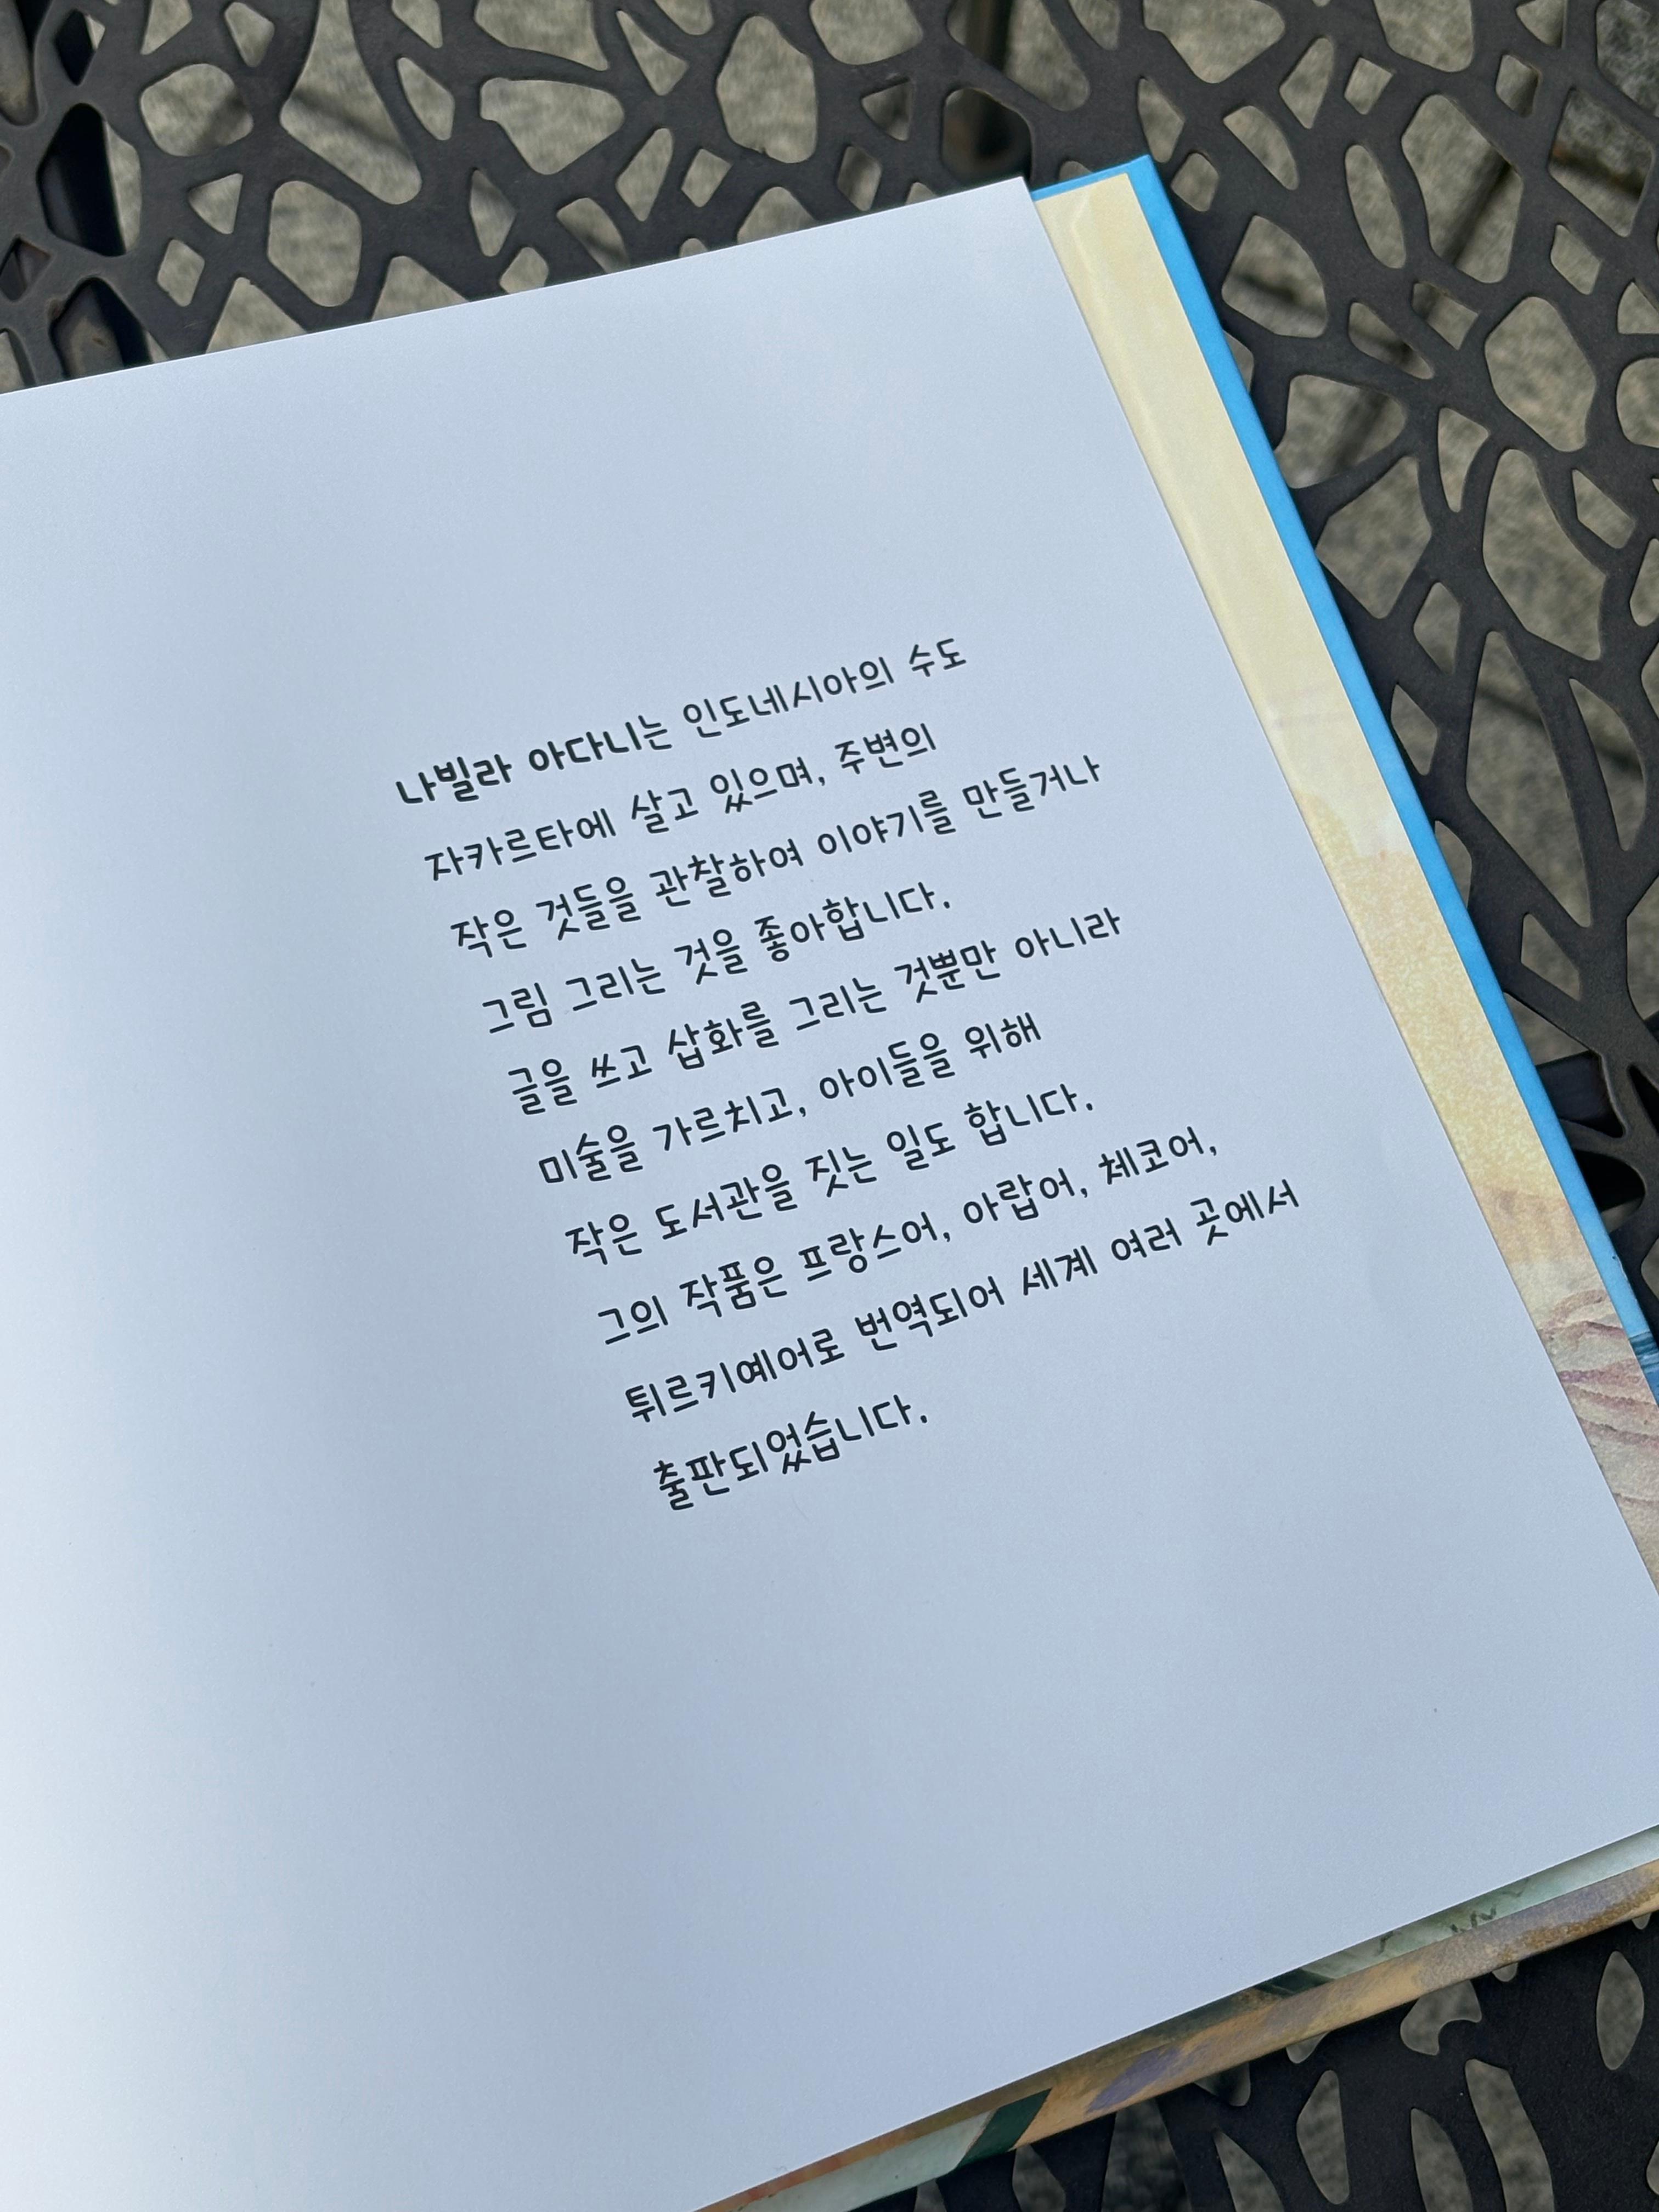 나빌라 아다니는 인도네시아의 수도
자카르타에 살고 있으며, 주변의
작은 것들을 관찰하여 이야기를 만들거나
그림 그리는 것을 좋아합니다.
글을 쓰고 삽화를 그리는 것뿐만 아니라
미술을 가르치고, 아이들을 위해
작은 도서관을 짓는 일도 합니다.
그의 작품은 프랑스어, 아랍어, 체코어,
튀르키예어로 번역되어 세계 여러 곳에서
출판되었습니다.